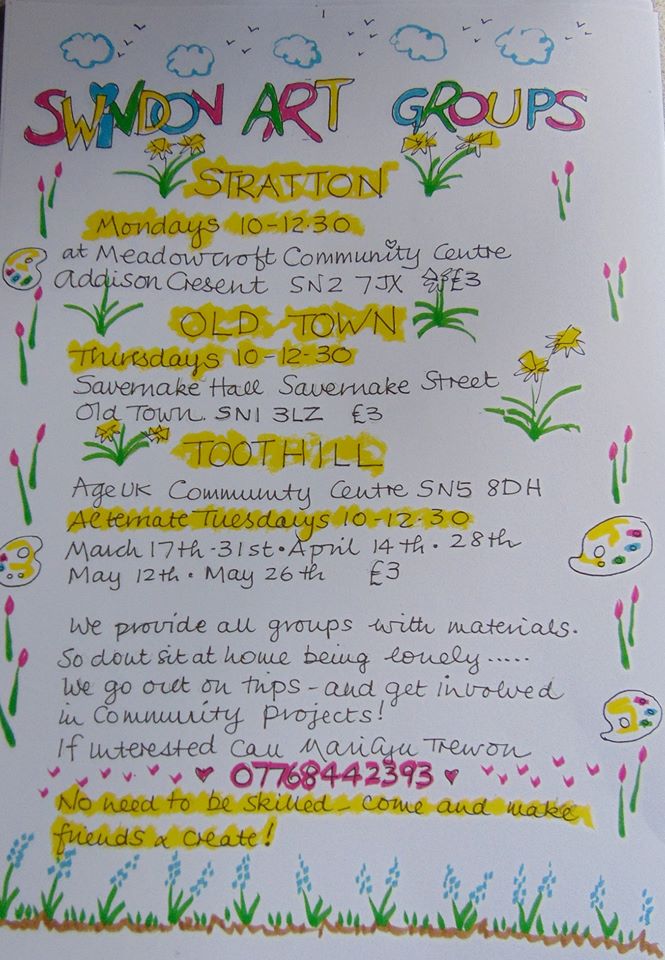 SWINDON ART GROUPS
STRATTON
Mondays 10-12.30
at Meadowcroft Community Centre
Addison Cresent SN2 7JX £3
OLD TOWN
Thursdays 10-12-30
Savernake Hall Savernake Street
Old Town. SN1 3LZ £3
TOOTHILL
Age UK Community Centre SN5 8DH
Alternate Tuesdays 10-12.30
March 17th-31st•April 14th• 28th
May 12th• May 26th £3
We provide all groups with materials.
So dont sit at home being lonely.....
We go out on trips - and get involved
in Community projects!
If interested Call Marilyn Trewon
07768442393
No need to be skilled - come and make
friends & create!